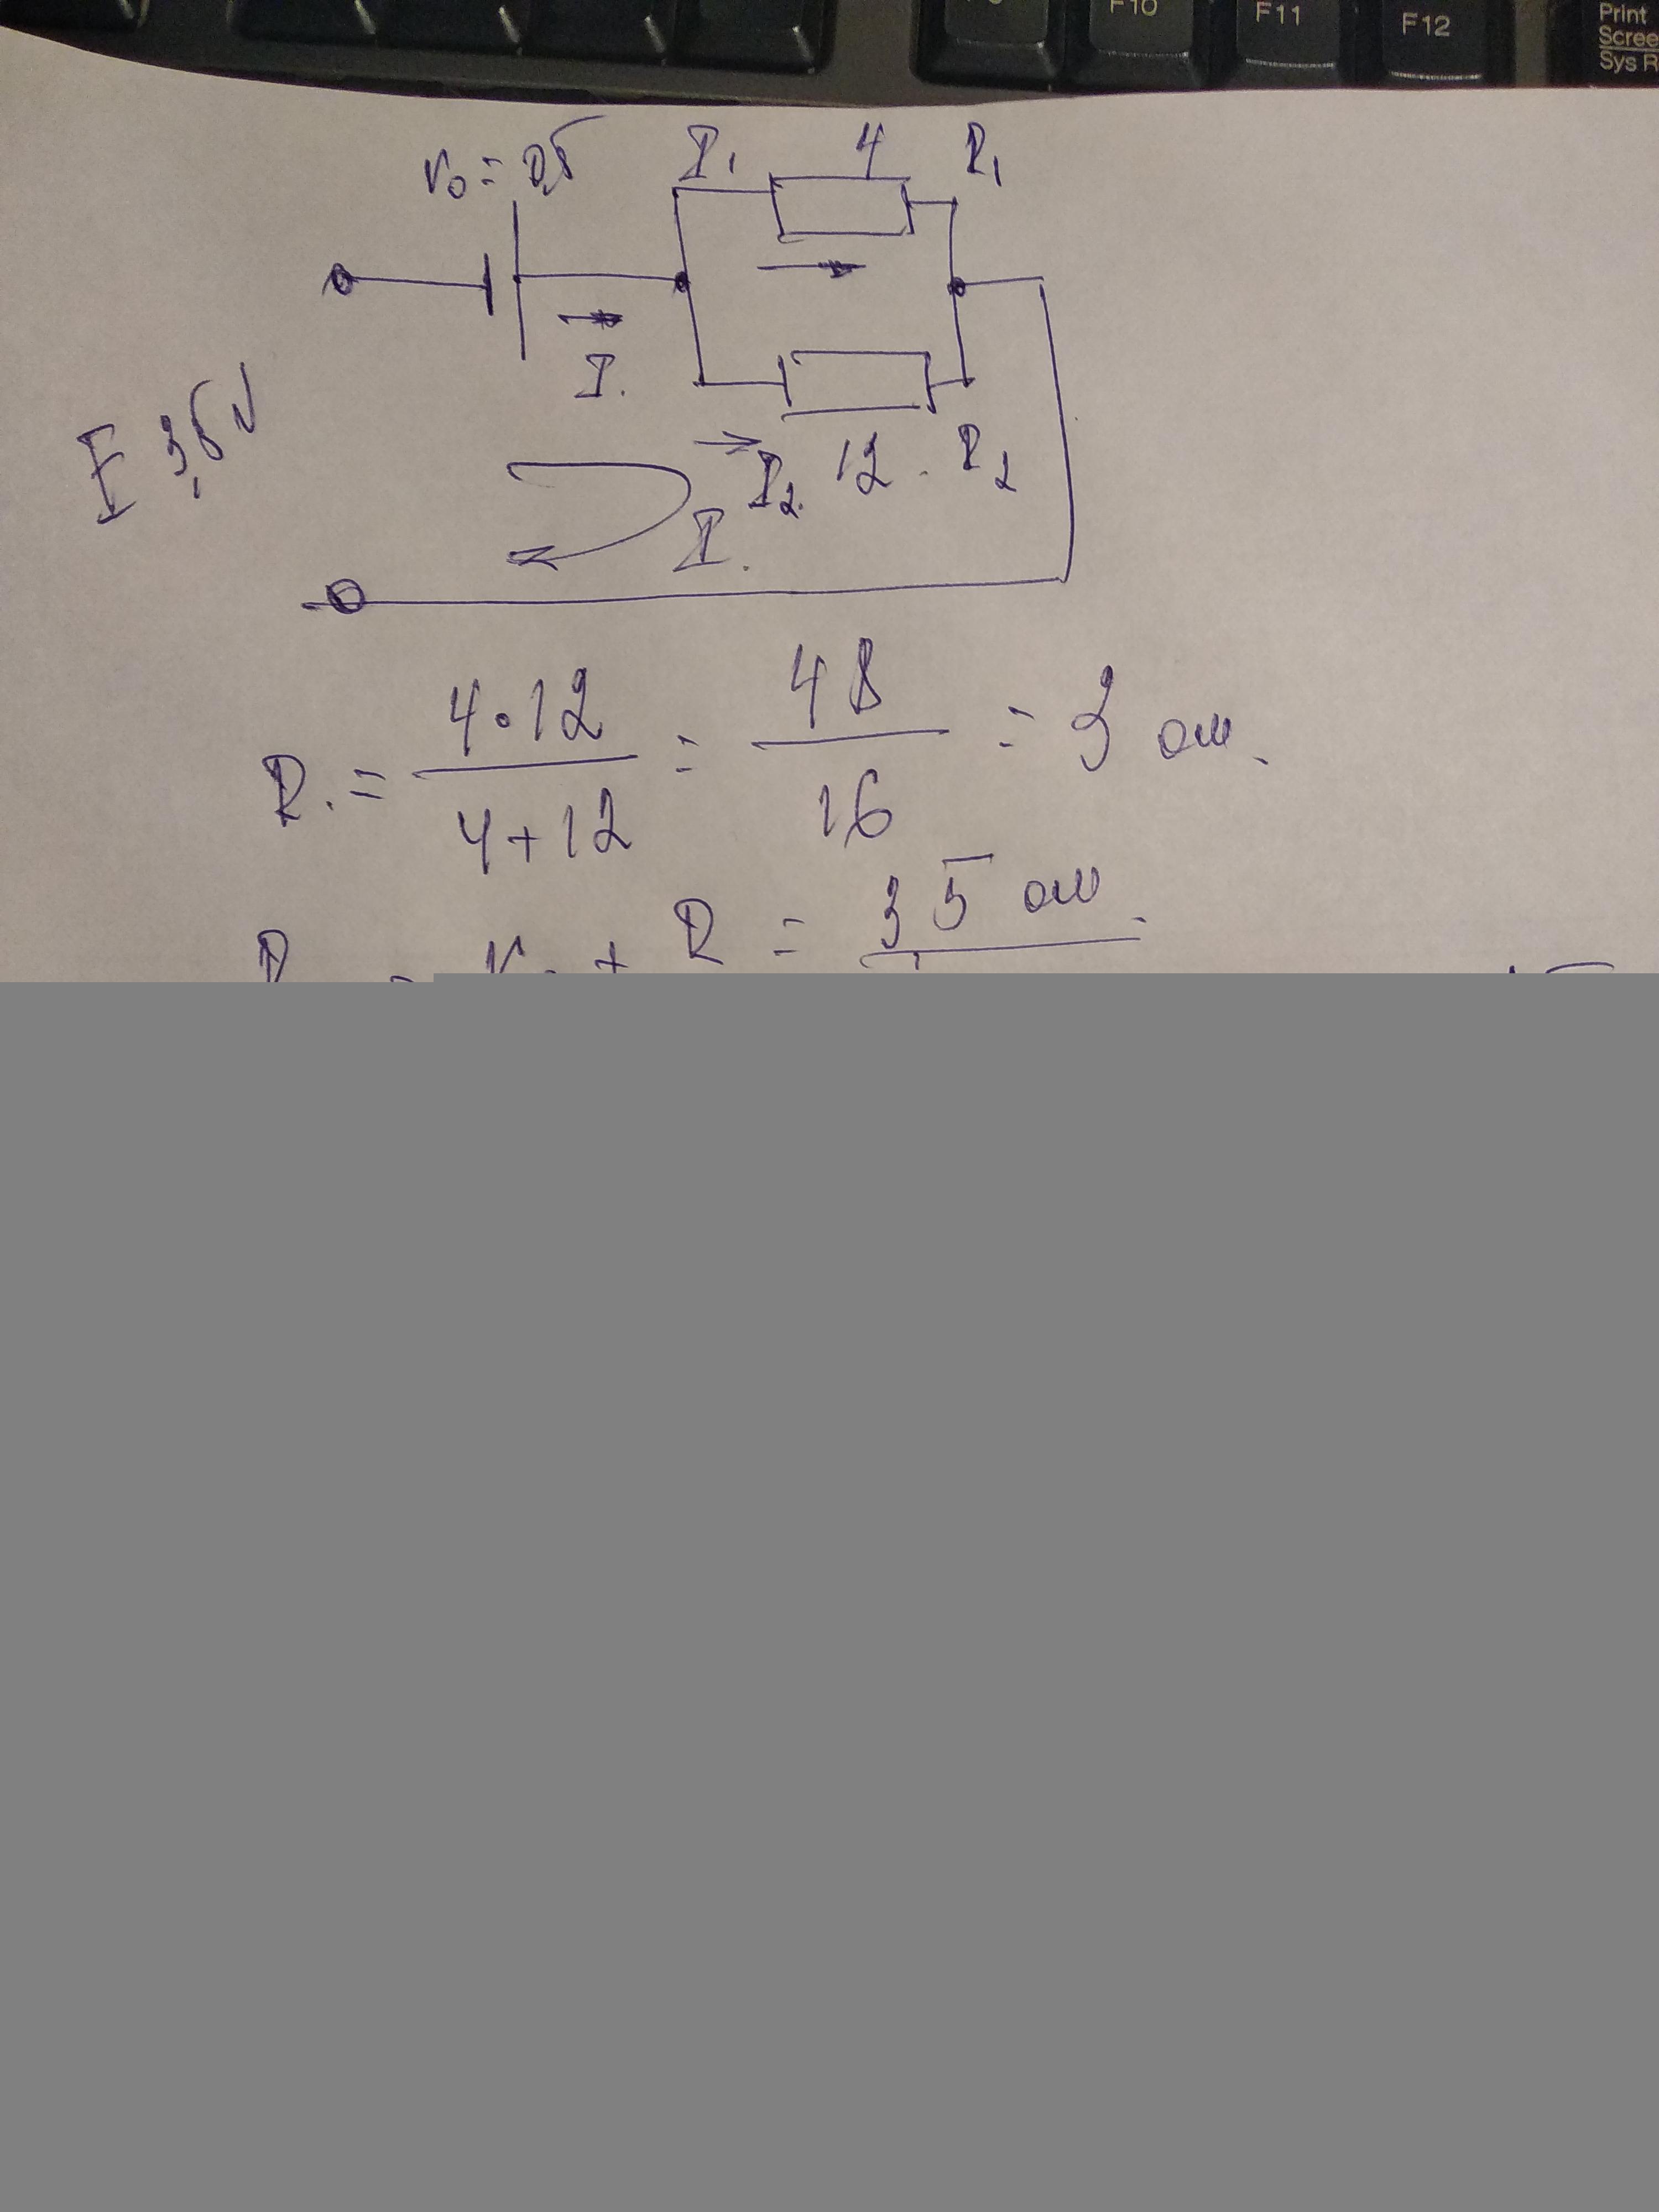 F10 F11 F12 Print
Scree
Sys R
r₀ = 0,5 I₁ 4 R₁
I.
E 3,5 V
I₂. 12. R₂
I.
R. = 4·12 / 4+12 = 48 / 16 = 3 ом.
= r₀ + R = 3,5 ом.